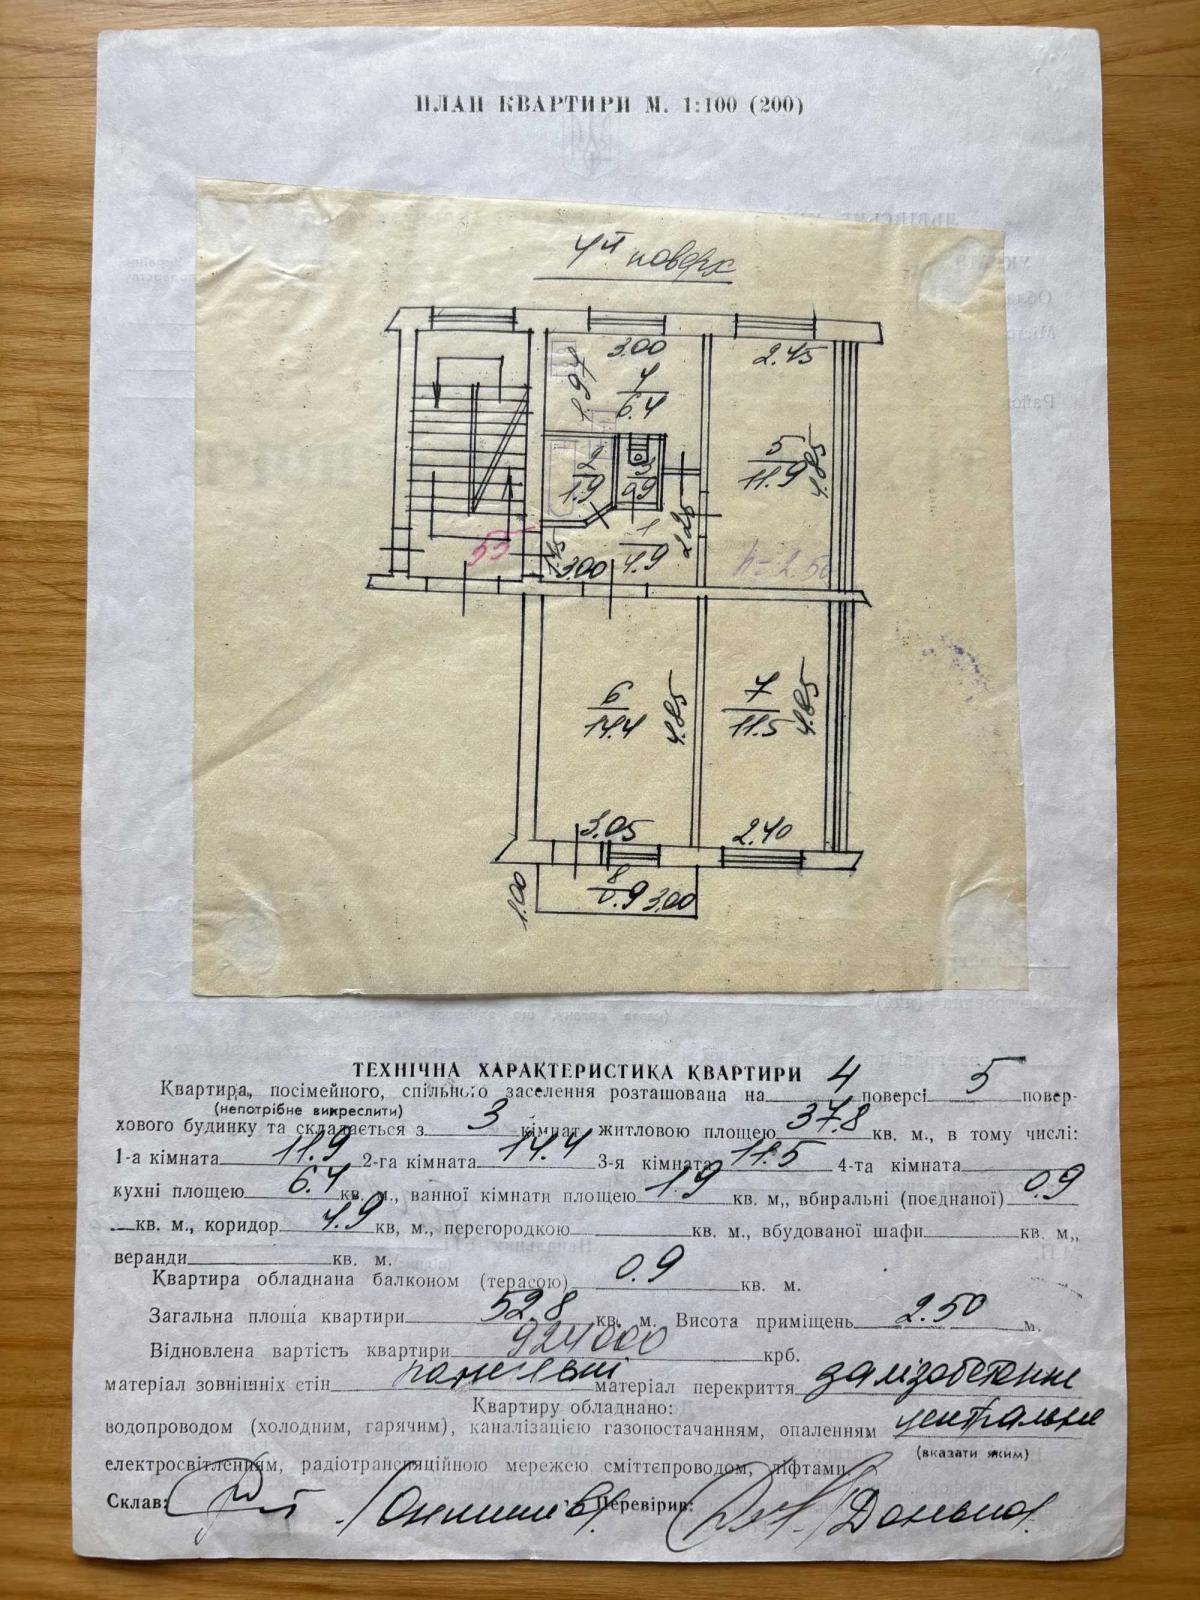 ПЛАН КВАРТИРИ М. 1:100 (200)
4й поверх
3.00
2.45
1.97
4
6.4
5
11.9
4.85
2
1.9
3
0.9
2.25
1
4.9
55
1.45
3.00
h=2.50
6
14.4
4.85
7
11.5
4.85
3.05
2.40
8
0.9
3.00
1.00
ТЕХНІЧНА ХАРАКТЕРИСТИКА КВАРТИРИ
Квартира, посімейного, спільного заселення розташована на 4 поверсі 5 повер-
(непотрібне викреслити)
хового будинку та складається з 3 кімнат житловою площею 37.8 кв. м., в тому числі:
1-а кімната 11.9 2-га кімната 14.4 3-я кімната 11.5 4-та кімната
кухні площею 6.4 кв. м., ванної кімнати площею 1.9 кв. м,, вбиральні (поєднаної) 0.9
кв. м., коридор 4.9 кв, м., перегородкою кв. м., вбудованої шафи кв. м,,
веранди кв. м.
Квартира обладнана балконом (терасою) 0.9 кв. м.
Загальна площа квартири 52.8 кв. м. Висота приміщень 2.50 м.
Відновлена вартість квартири 924000 крб.
матеріал зовнішніх стін панельні матеріал перекриття залізобетонне
Квартиру обладнано:
водопроводом (холодним, гарячим), каналізацією газопостачанням, опаленням центральне
(вказати яким)
електросвітленням, радіотрансляційною мережею сміттєпроводом, ліфтами
Склав: Перевірив: